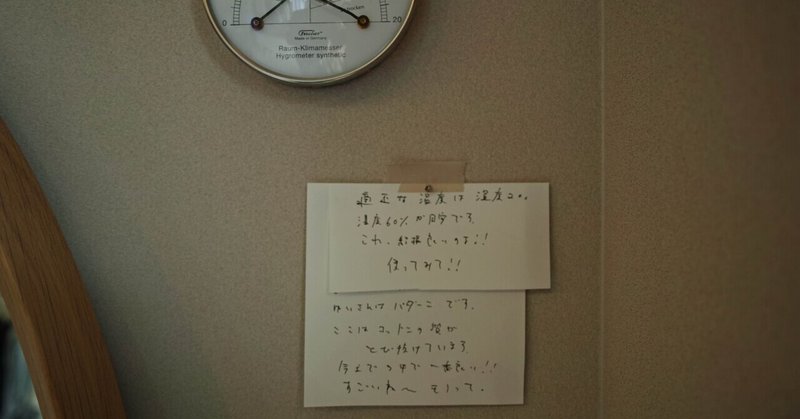 0
20
trocken
Fischer
Made in Germany
Raum-Klimamesser
Hygrometer synthetic
適正な温度は 温度20。
湿度60%が目安です。
これ、結構良いのよ!!
使ってみて!!
です。
ここはコットンの質が
とび抜けています。
今までの中で一番良い!!
すごいわ〜 もって。